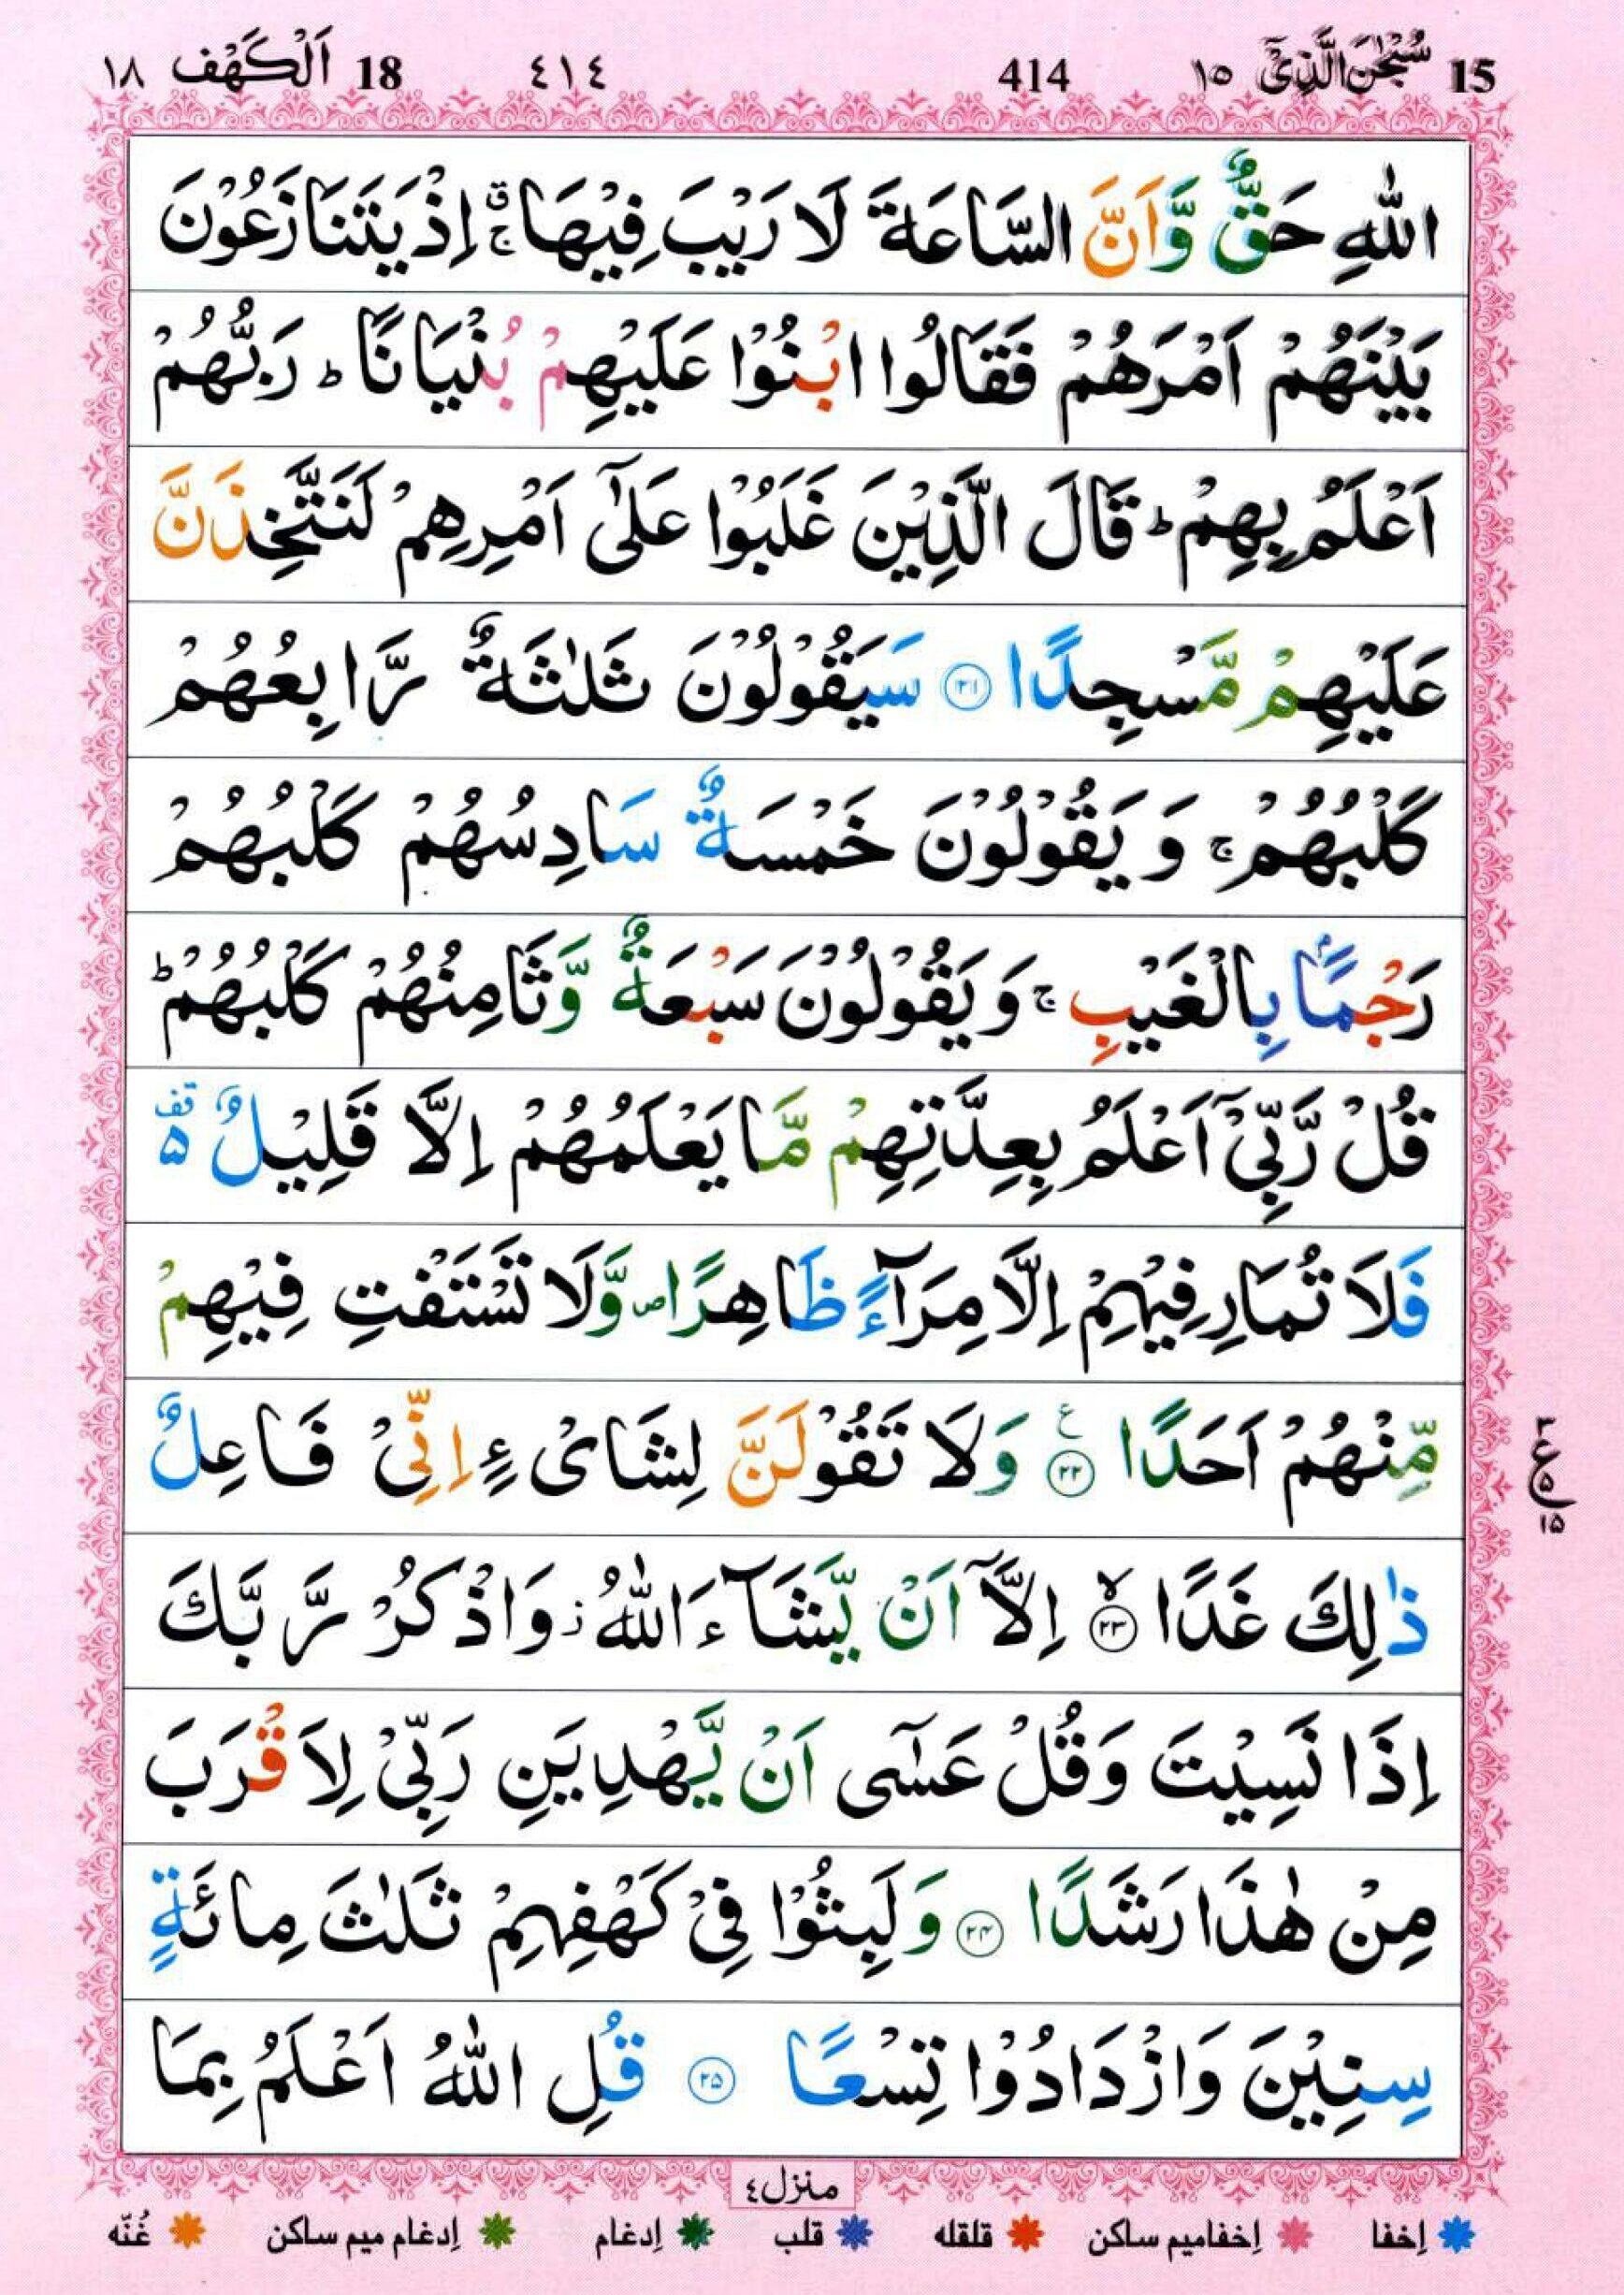 15 سُبْحٰنَ الَّذِیْۤ ١٥ 414 ٤١٤ 18 اَلْكَهْف ١٨
اللّٰهِ حَقٌّ وَّاَنَّ السَّاعَةَ لَا رَیْبَ فِیْهَا ۚۗ اِذْ یَتَنَازَعُوْنَ
بَیْنَهُمْ اَمْرَهُمْ فَقَالُوا ابْنُوْا عَلَیْهِمْ بُنْیَانًا ؕ رَبُّهُمْ
اَعْلَمُ بِهِمْ ؕ قَالَ الَّذِیْنَ غَلَبُوْا عَلٰۤی اَمْرِهِمْ لَنَتَّخِذَنَّ
عَلَیْهِمْ مَّسْجِدًا ۝۲۱ سَیَقُوْلُوْنَ ثَلٰثَةٌ رَّابِعُهُمْ
كَلْبُهُمْ ۚ وَ یَقُوْلُوْنَ خَمْسَةٌ سَادِسُهُمْ كَلْبُهُمْ
رَجْمًۢا بِالْغَیْبِ ۚ وَ یَقُوْلُوْنَ سَبْعَةٌ وَّثَامِنُهُمْ كَلْبُهُمْ ؕ
قُلْ رَّبِّیْۤ اَعْلَمُ بِعِدَّتِهِمْ مَّا یَعْلَمُهُمْ اِلَّا قَلِیْلٌ قف ۵
فَلَا تُمَارِ فِیْهِمْ اِلَّا مِرَآءً ظَاهِرًا ۪ وَّلَا تَسْتَفْتِ فِیْهِمْ
مِّنْهُمْ اَحَدًا ۝۲۲ ع وَلَا تَقُوْلَنَّ لِشَایْءٍ اِنِّیْ فَاعِلٌ
ذٰلِكَ غَدًا ۝۲۳ ۙ اِلَّاۤ اَنْ یَّشَآءَ اللّٰهُ ؗ وَاذْكُرْ رَّبَّكَ
اِذَا نَسِیْتَ وَقُلْ عَسٰۤی اَنْ یَّهْدِیَنِ رَبِّیْ لِاَقْرَبَ
مِنْ هٰذَا رَشَدًا ۝۲۴ وَلَبِثُوْا فِیْ كَهْفِهِمْ ثَلٰثَ مِائَةٍ
سِنِیْنَ وَازْدَادُوْا تِسْعًا ۝۲۵ قُلِ اللّٰهُ اَعْلَمُ بِمَا
منزل٤
إخفا إخفامیم ساكن قلقله قلب إدغام إدغام میم ساكن غُنّه